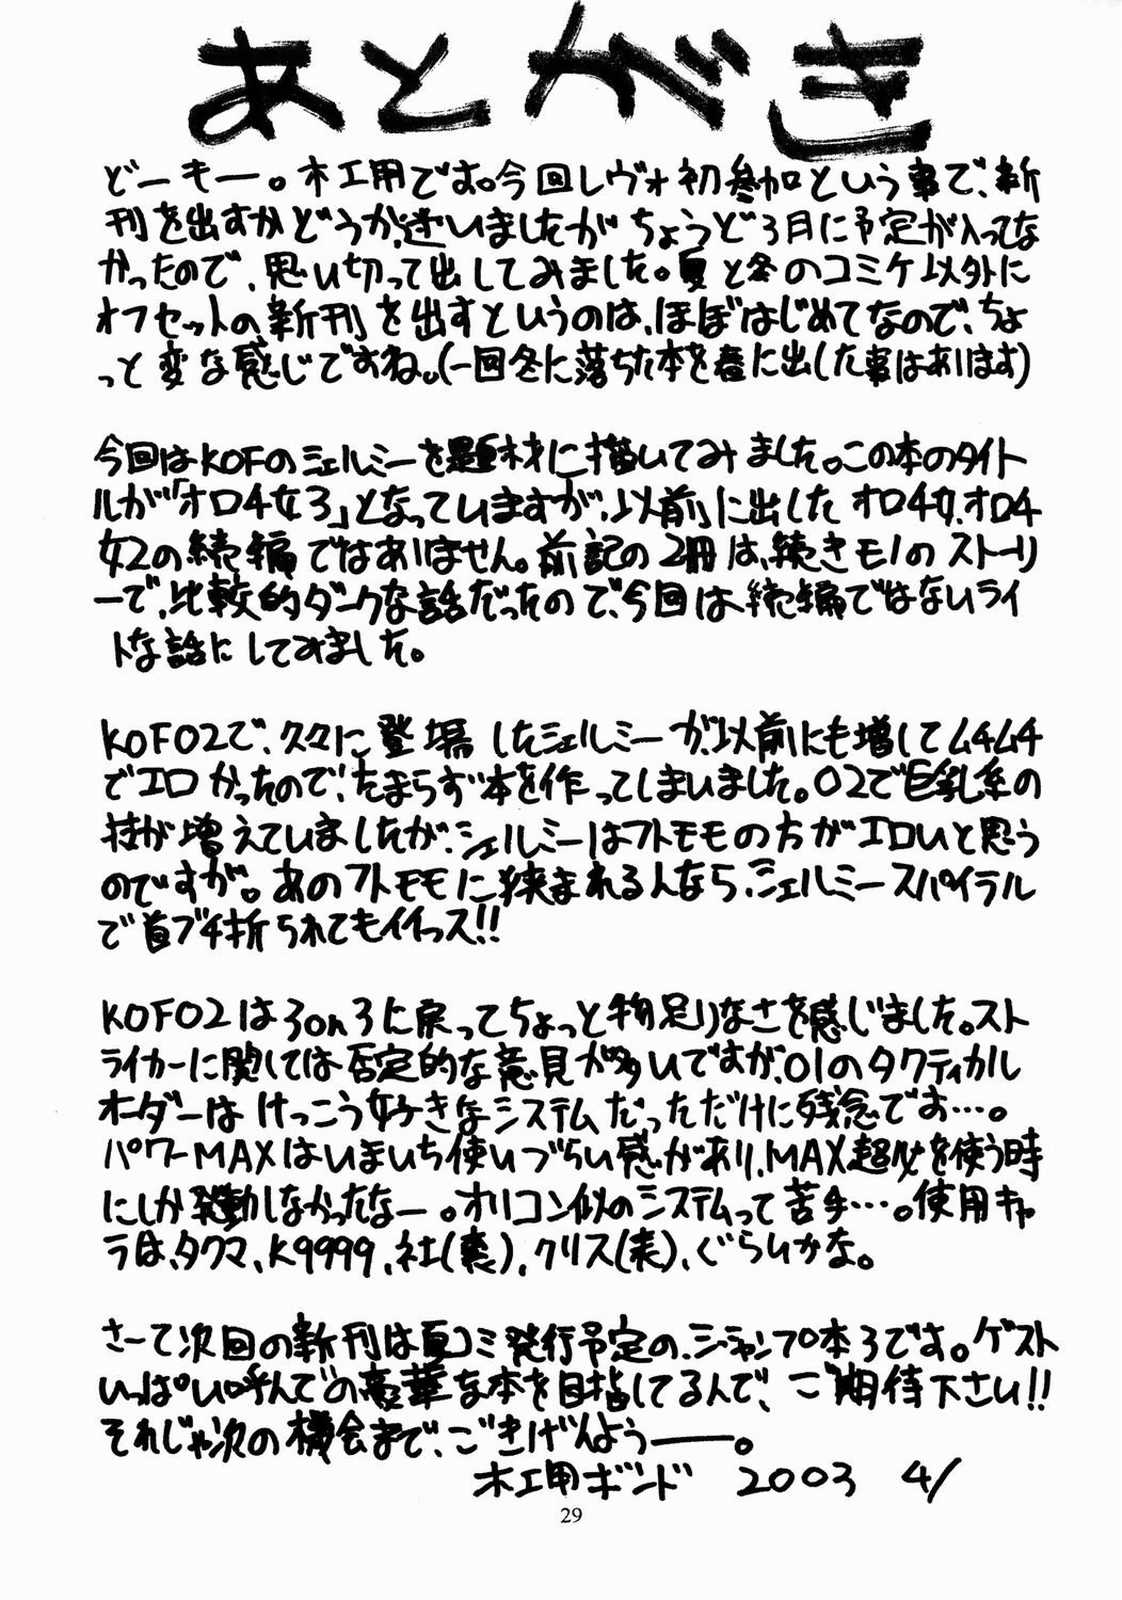 あとがき
どーもー。木工用です。今回レヴォ初参加という事で、新
刊を出すかどうか迷いましたがちょうど3月に予定が入ってな
かったので、思い切って出してみました。夏と冬のコミケ以外に
オフセットの新刊を出すというのは、ほぼはじめてなので、ちょ
っと変な感じですね。(一回冬に落ちた本を春に出した事はあります)
今回はKOFのシェルミーを題材に描いてみました。この本のタイト
ルが「オロチ女3」となっていますが、以前に出したオロチ女、オロチ
女2の続編ではありません。前記の2冊は、続きモノのストーリ
ーで、比較的ダークな話だったので、今回は続編ではないライ
トな話にしてみました。
KOF02で、久々に登場したシェルミーが、以前にも増してムチムチ
でエロかったので、たまらず本を作ってしまいました。02で巨乳系の
技が増えていましたが、シェルミーはフトモモの方がエロいと思う
のですが。あのフトモモに挟まれる人なら、シェルミースパイラル
で首ブチ折られてもイイっス!!
KOF02は3on3に戻ってちょっと物足りなさを感じました。スト
ライカーに関しては否定的な意見が多いですが、01のタクティカル
オーダーはけっこう好きなシステムだっただけに残念でお…。
パワーMAXはいまいち使いづらい感があり、MAX超必を使う時
にしか発動しなかったなー。オリコン似のシステムって苦手…。使用キャ
ラは、タクマ、K9999、社(裏)、クリス(表)、ぐらいかな。
さーて次回の新刊は夏コミ発行予定の、ジャンプ本3です。ゲスト
いっぱい呼んでの豪華な本を目指してるんで、ご期待下さい!!
それじゃ次の機会まで、ごきげんようー。
木工用ボンド 2003 4/
29